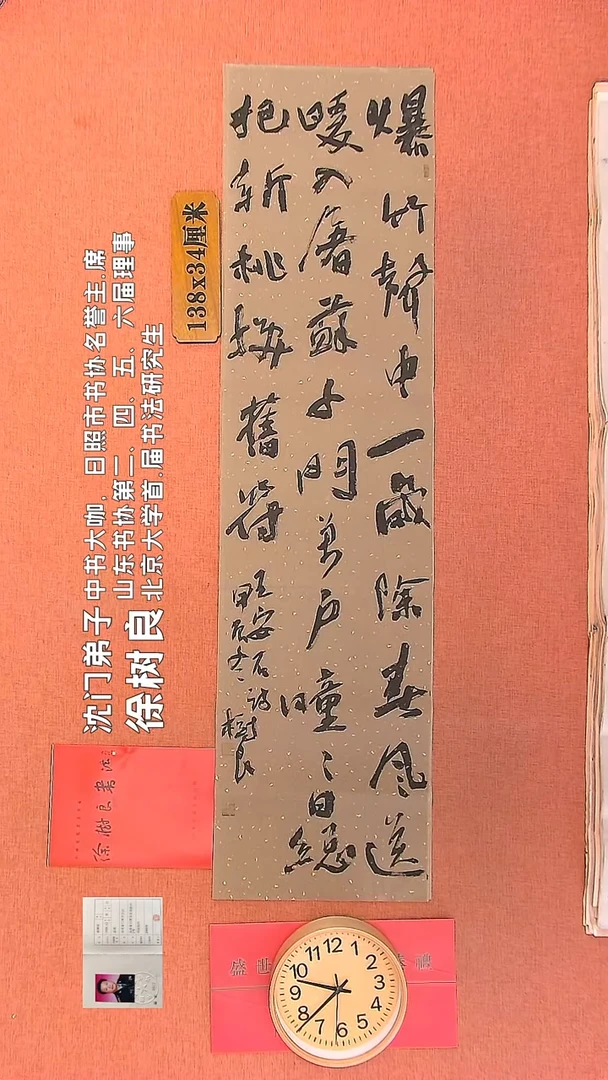 爆竹聲中一歲除春風送
暖入屠蘇千門萬户曈〻日總
把新桃換舊符
王安石詩
甲辰冬
樹良
138x34厘米
沈门弟子
徐树良
中书大咖,日照市书协名誉主席
山东书协第二、四、五、六届理事
北京大学首届书法研究生
徐樹良書法
盛世
12
1
2
3
4
5
6
7
8
9
10
11